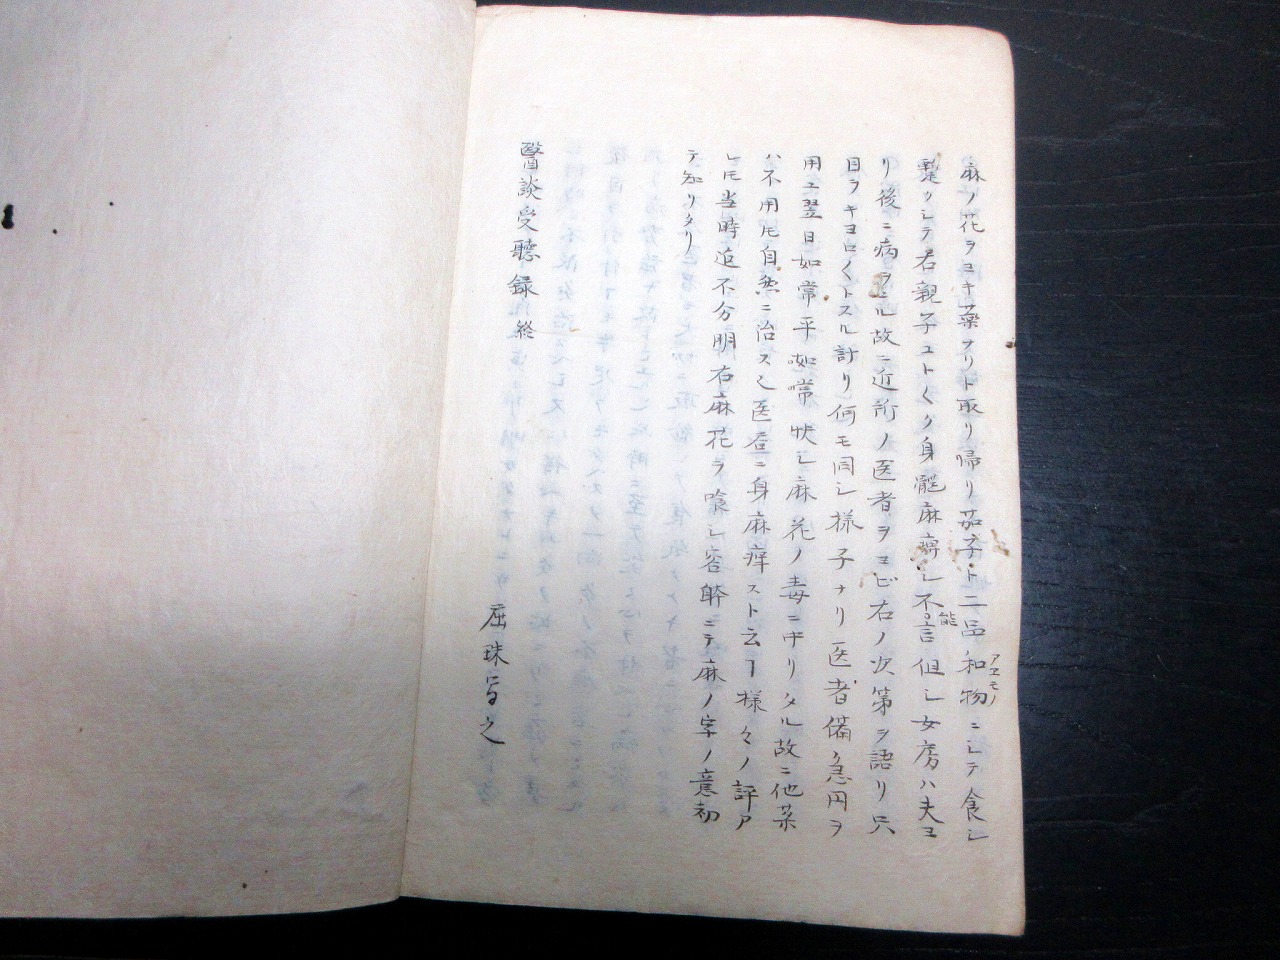 麻ノ花ヲヨキ葉ナリト取リ帰リ茄子ト二品和物ニシテ食シ
アエモノ
暫クシテ右親子コト〳〵ク身體麻痺シ不能言但シ女房ハ夫ヨ
リ後ニ病ヲエル故ニ近所ノ医者ヲヨビ右ノ次第ヲ語リ只
目ヲキヨロ〳〵トスル計リ何モ同シ様子ナリ医者備急円ヲ
用ユ翌日如常平 如常状シ麻花ノ毒ニ中リタル故ニ他薬
ハ不用トモ自然ニ治ス 医者ニ身麻痺スト云フ様々ノ評ア
レトモ当時迄不分明右麻花ヲ喰シ容躰ニテ麻ノ字ノ意初
テ知リタリ
醫談受聽録終
屈珠写之